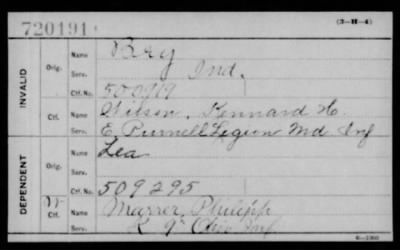 720191
(3-H-4)
INVALID
Orig.
Name Bry
Serv. Ind.
Ctf. No. 500919
Ctf.
Name Wilson, Kennard H.
Serv. E, Purnell Legion Md Inf
DEPENDENT
Orig.
Name Lea
Serv.
Ctf. No. 509295
W
Ctf.
Name Marrer, Philipp
Serv. K 9" Ohio Inf